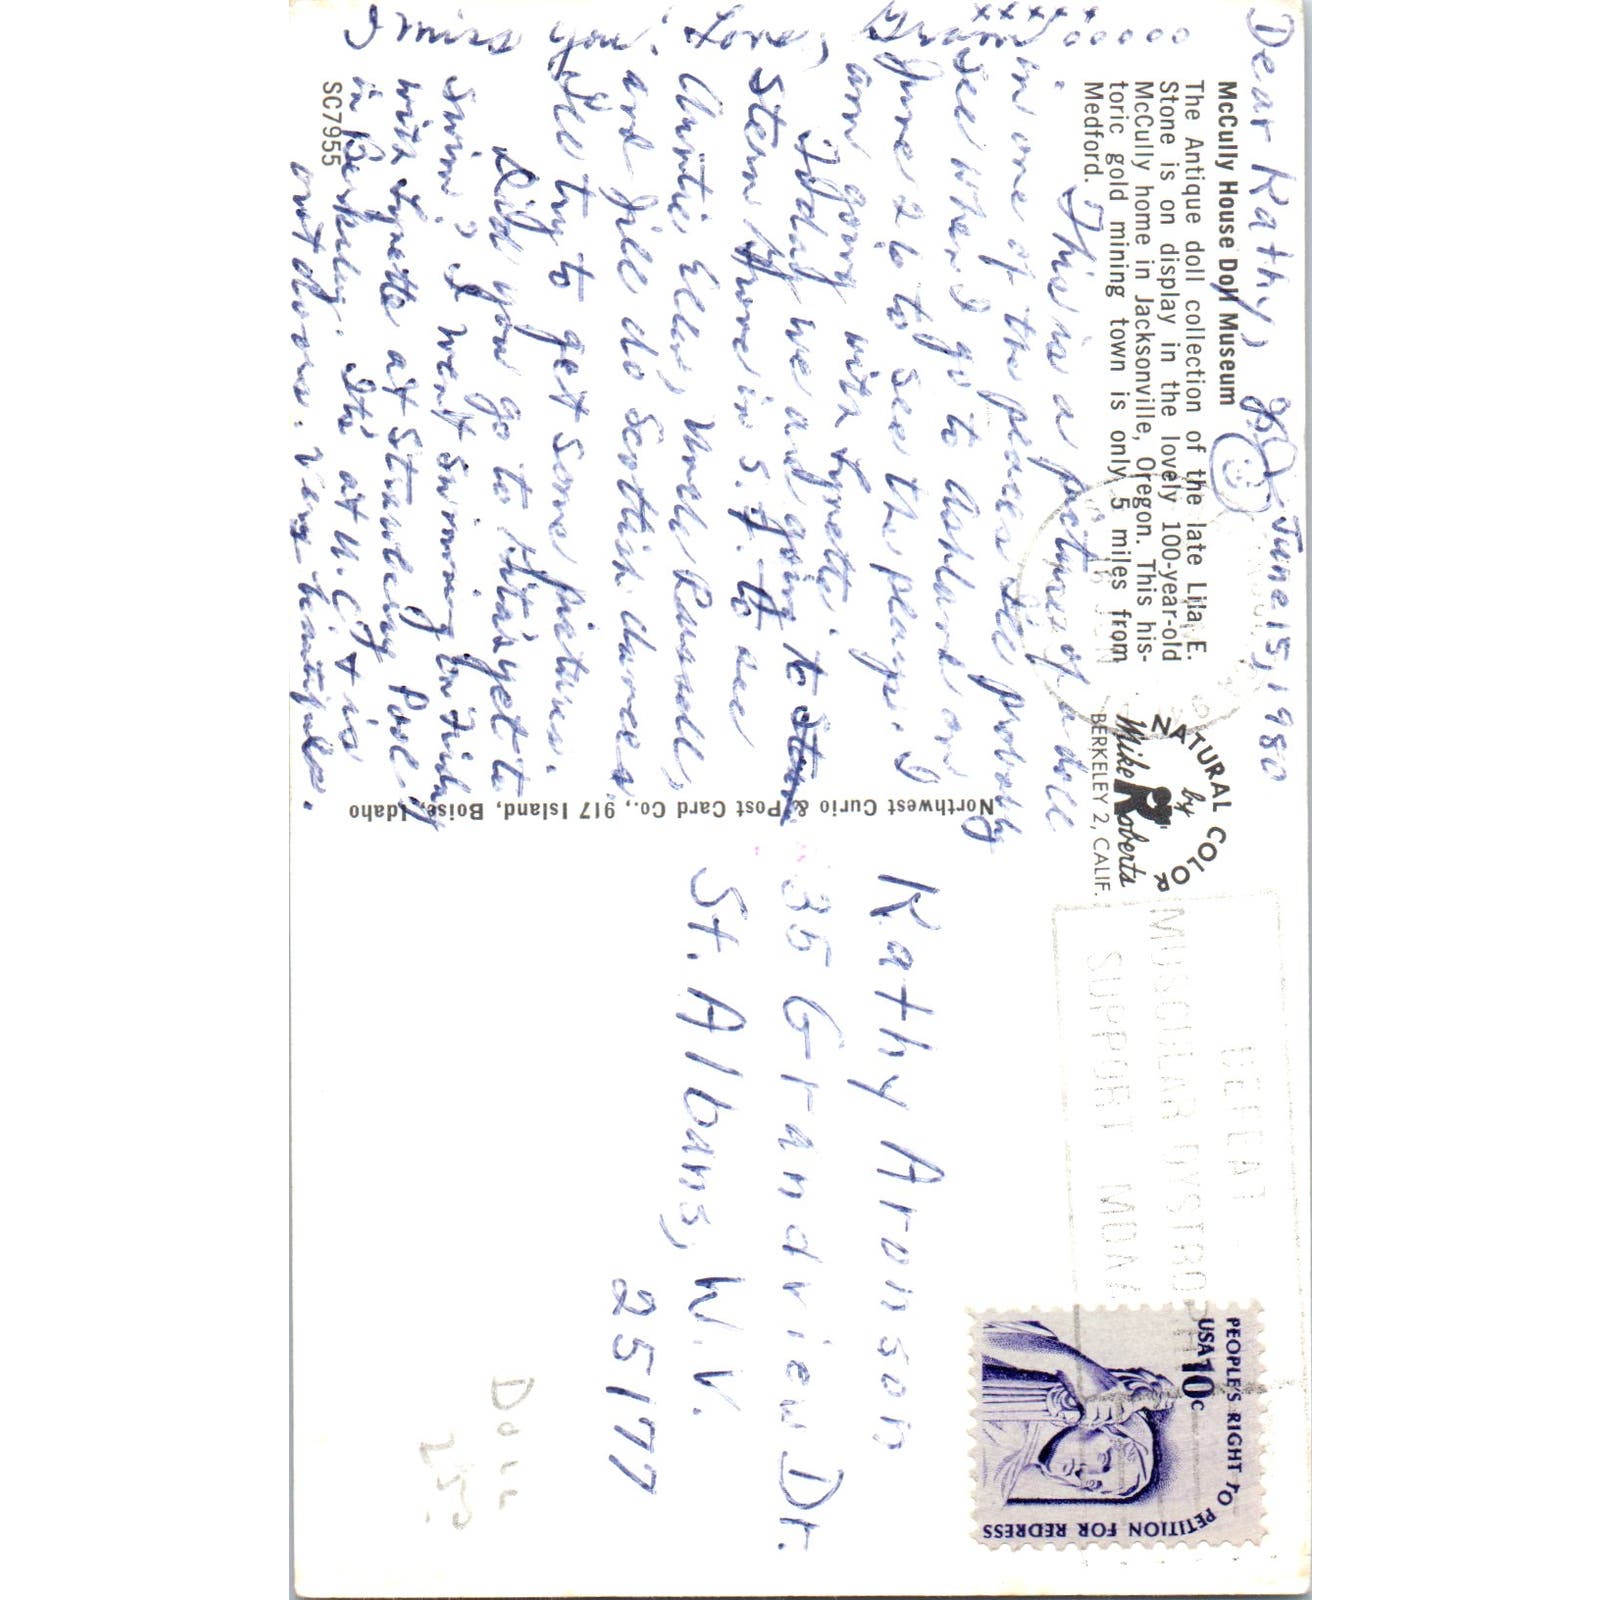 Dear Kathy,
June 15, 1980
McCully House Doll Museum
The Antique doll collection of the late Lila E.
Stone is on display in the lovely 100-year-old
McCully home in Jacksonville, Oregon. This his-
toric gold mining town is only 5 miles from
Medford.
This is a picture of a doll
in one of the places I'll probably
see when I go to Ashland on
June 26 to see the plays. I
am going with Lynette.
Today we are going to Stern
Stern Grove in S.F. to see
Auntie Ellen, Uncle Russell,
and Jill do Scottish dances.
I'll try to get some pictures.
Did you go to Rita's yet to
swim? I went swimming on Friday
with Lynette at Strawberry Pool
in Berkeley. It's at U.C. & is
outdoors. Very beautiful.
I miss you! Love,
xxxxx
ooooo
SC7955
Northwest Curio & Post Card Co., 917 Island, Boise, Idaho
NATURAL COLOR
by
Mike Roberts
BERKELEY 2, CALIF.
DEFEAT
MUSCULAR DYSTROPHY
SUPPORT MDAA
PEOPLE'S RIGHT TO PETITION FOR REDRESS
USA 10c
Kathy Aronson
35 Grandview Dr.
St. Albans, W.V.
25177
Doll